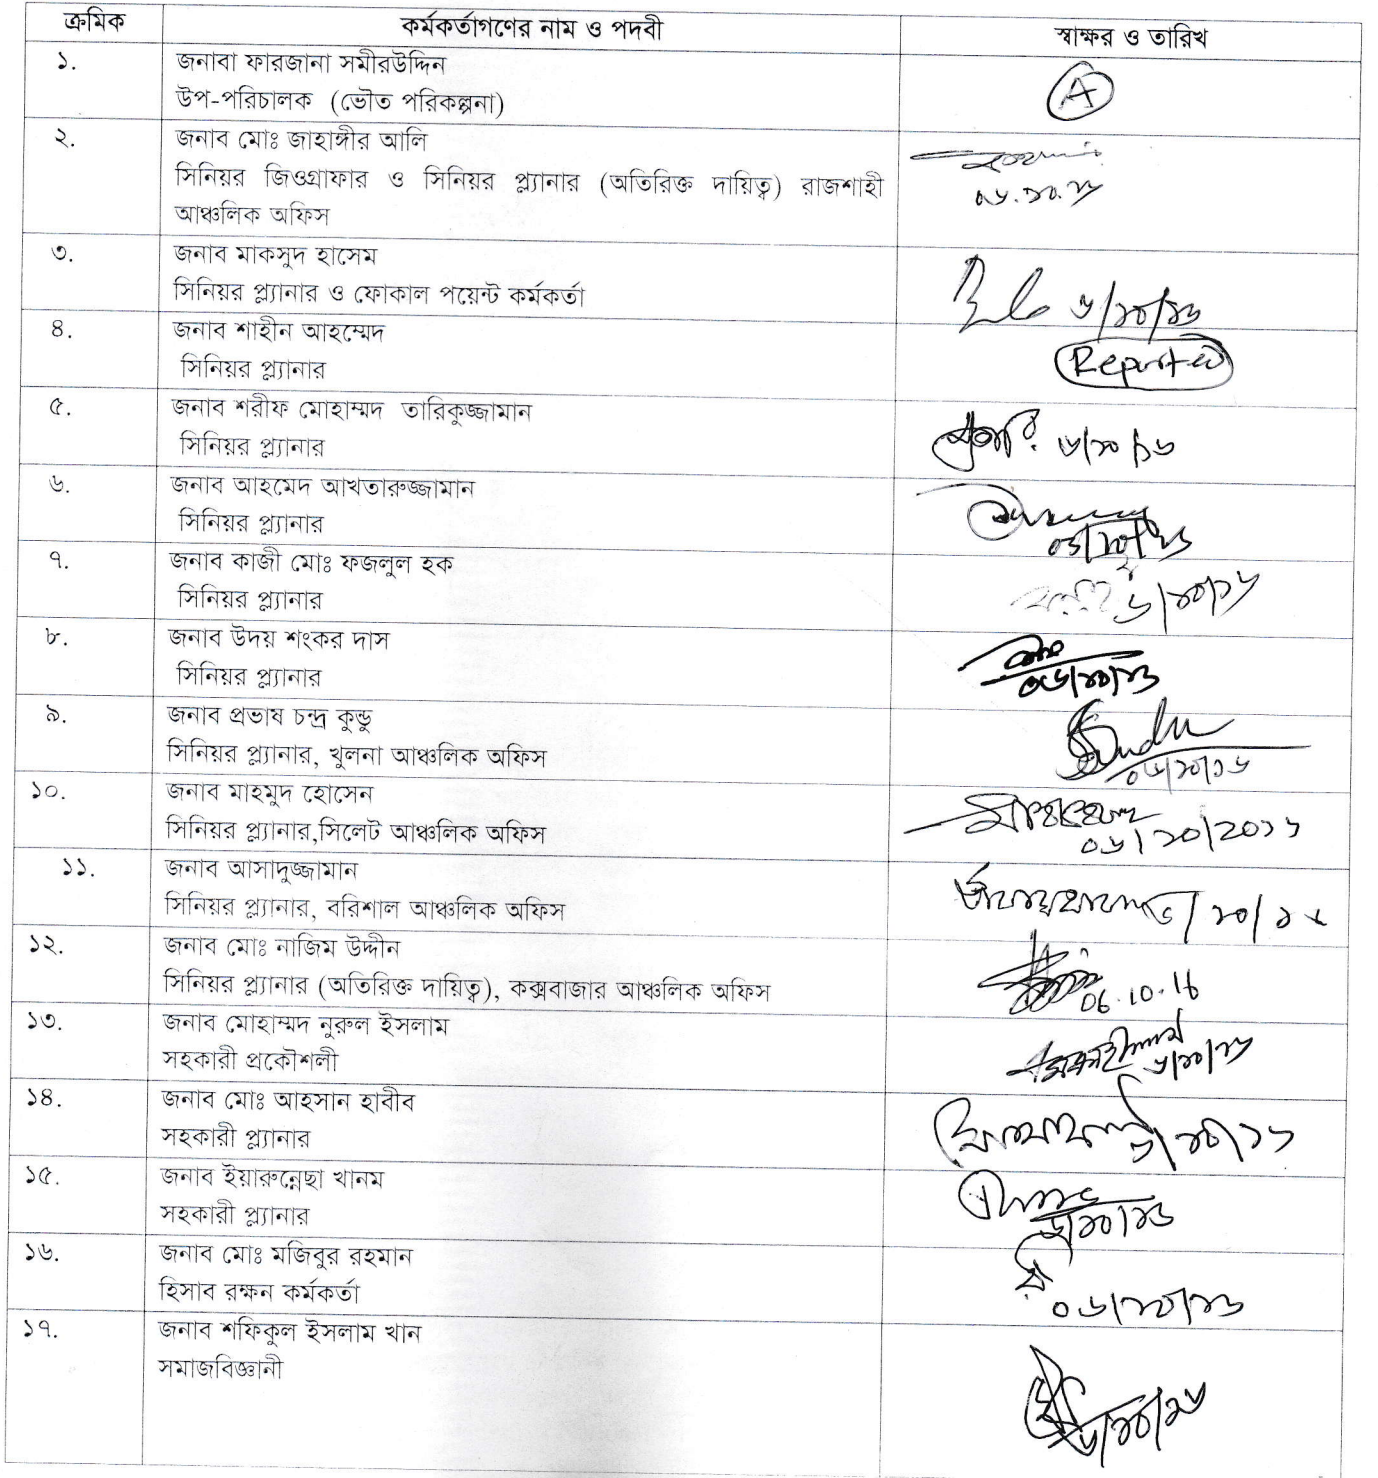 ক্রমিক কর্মকর্তাগণের নাম ও পদবী স্বাক্ষর ও তারিখ
১. জনাবা ফারজানা সমীরউদ্দিন
উপ-পরিচালক (ভৌত পরিকল্পনা) A
২. জনাব মোঃ জাহাঙ্গীর আলি
সিনিয়র জিওগ্রাফার ও সিনিয়র প্ল্যানার (অতিরিক্ত দায়িত্ব) রাজশাহী
আঞ্চলিক অফিস ০৬.১০.১৬
৩. জনাব মাকসুদ হাসেম
সিনিয়র প্ল্যানার ও ফোকাল পয়েন্ট কর্মকর্তা ৬/১০/১৬
৪. জনাব শাহীন আহম্মেদ
সিনিয়র প্ল্যানার Reported
৫. জনাব শরীফ মোহাম্মদ তারিকুজ্জামান
সিনিয়র প্ল্যানার ৬/১০/১৬
৬. জনাব আহমেদ আখতারুজ্জামান
সিনিয়র প্ল্যানার ০৬/১০/১৬
৭. জনাব কাজী মোঃ ফজলুল হক
সিনিয়র প্ল্যানার ৬/১০/১৬
৮. জনাব উদয় শংকর দাস
সিনিয়র প্ল্যানার ০৬/১০/১৬
৯. জনাব প্রভাষ চন্দ্র কুন্ডু
সিনিয়র প্ল্যানার, খুলনা আঞ্চলিক অফিস ০৬/১০/১৬
১০. জনাব মাহমুদ হোসেন
সিনিয়র প্ল্যানার,সিলেট আঞ্চলিক অফিস ০৬/১০/২০১৬
১১. জনাব আসাদুজ্জামান
সিনিয়র প্ল্যানার, বরিশাল আঞ্চলিক অফিস
১২. জনাব মোঃ নাজিম উদ্দীন
সিনিয়র প্ল্যানার (অতিরিক্ত দায়িত্ব), কক্সবাজার আঞ্চলিক অফিস 06.10.16
১৩. জনাব মোহাম্মদ নুরুল ইসলাম
সহকারী প্রকৌশলী ৬/১০/১৬
১৪. জনাব মোঃ আহসান হাবীব
সহকারী প্ল্যানার ৬/১০/১৬
১৫. জনাব ইয়ারুন্নেছা খানম
সহকারী প্ল্যানার ৬/১০/১৬
১৬. জনাব মোঃ মজিবুর রহমান
হিসাব রক্ষন কর্মকর্তা ০৬/১০/১৬
১৭. জনাব শফিকুল ইসলাম খান
সমাজবিজ্ঞানী ৬/১০/১৬